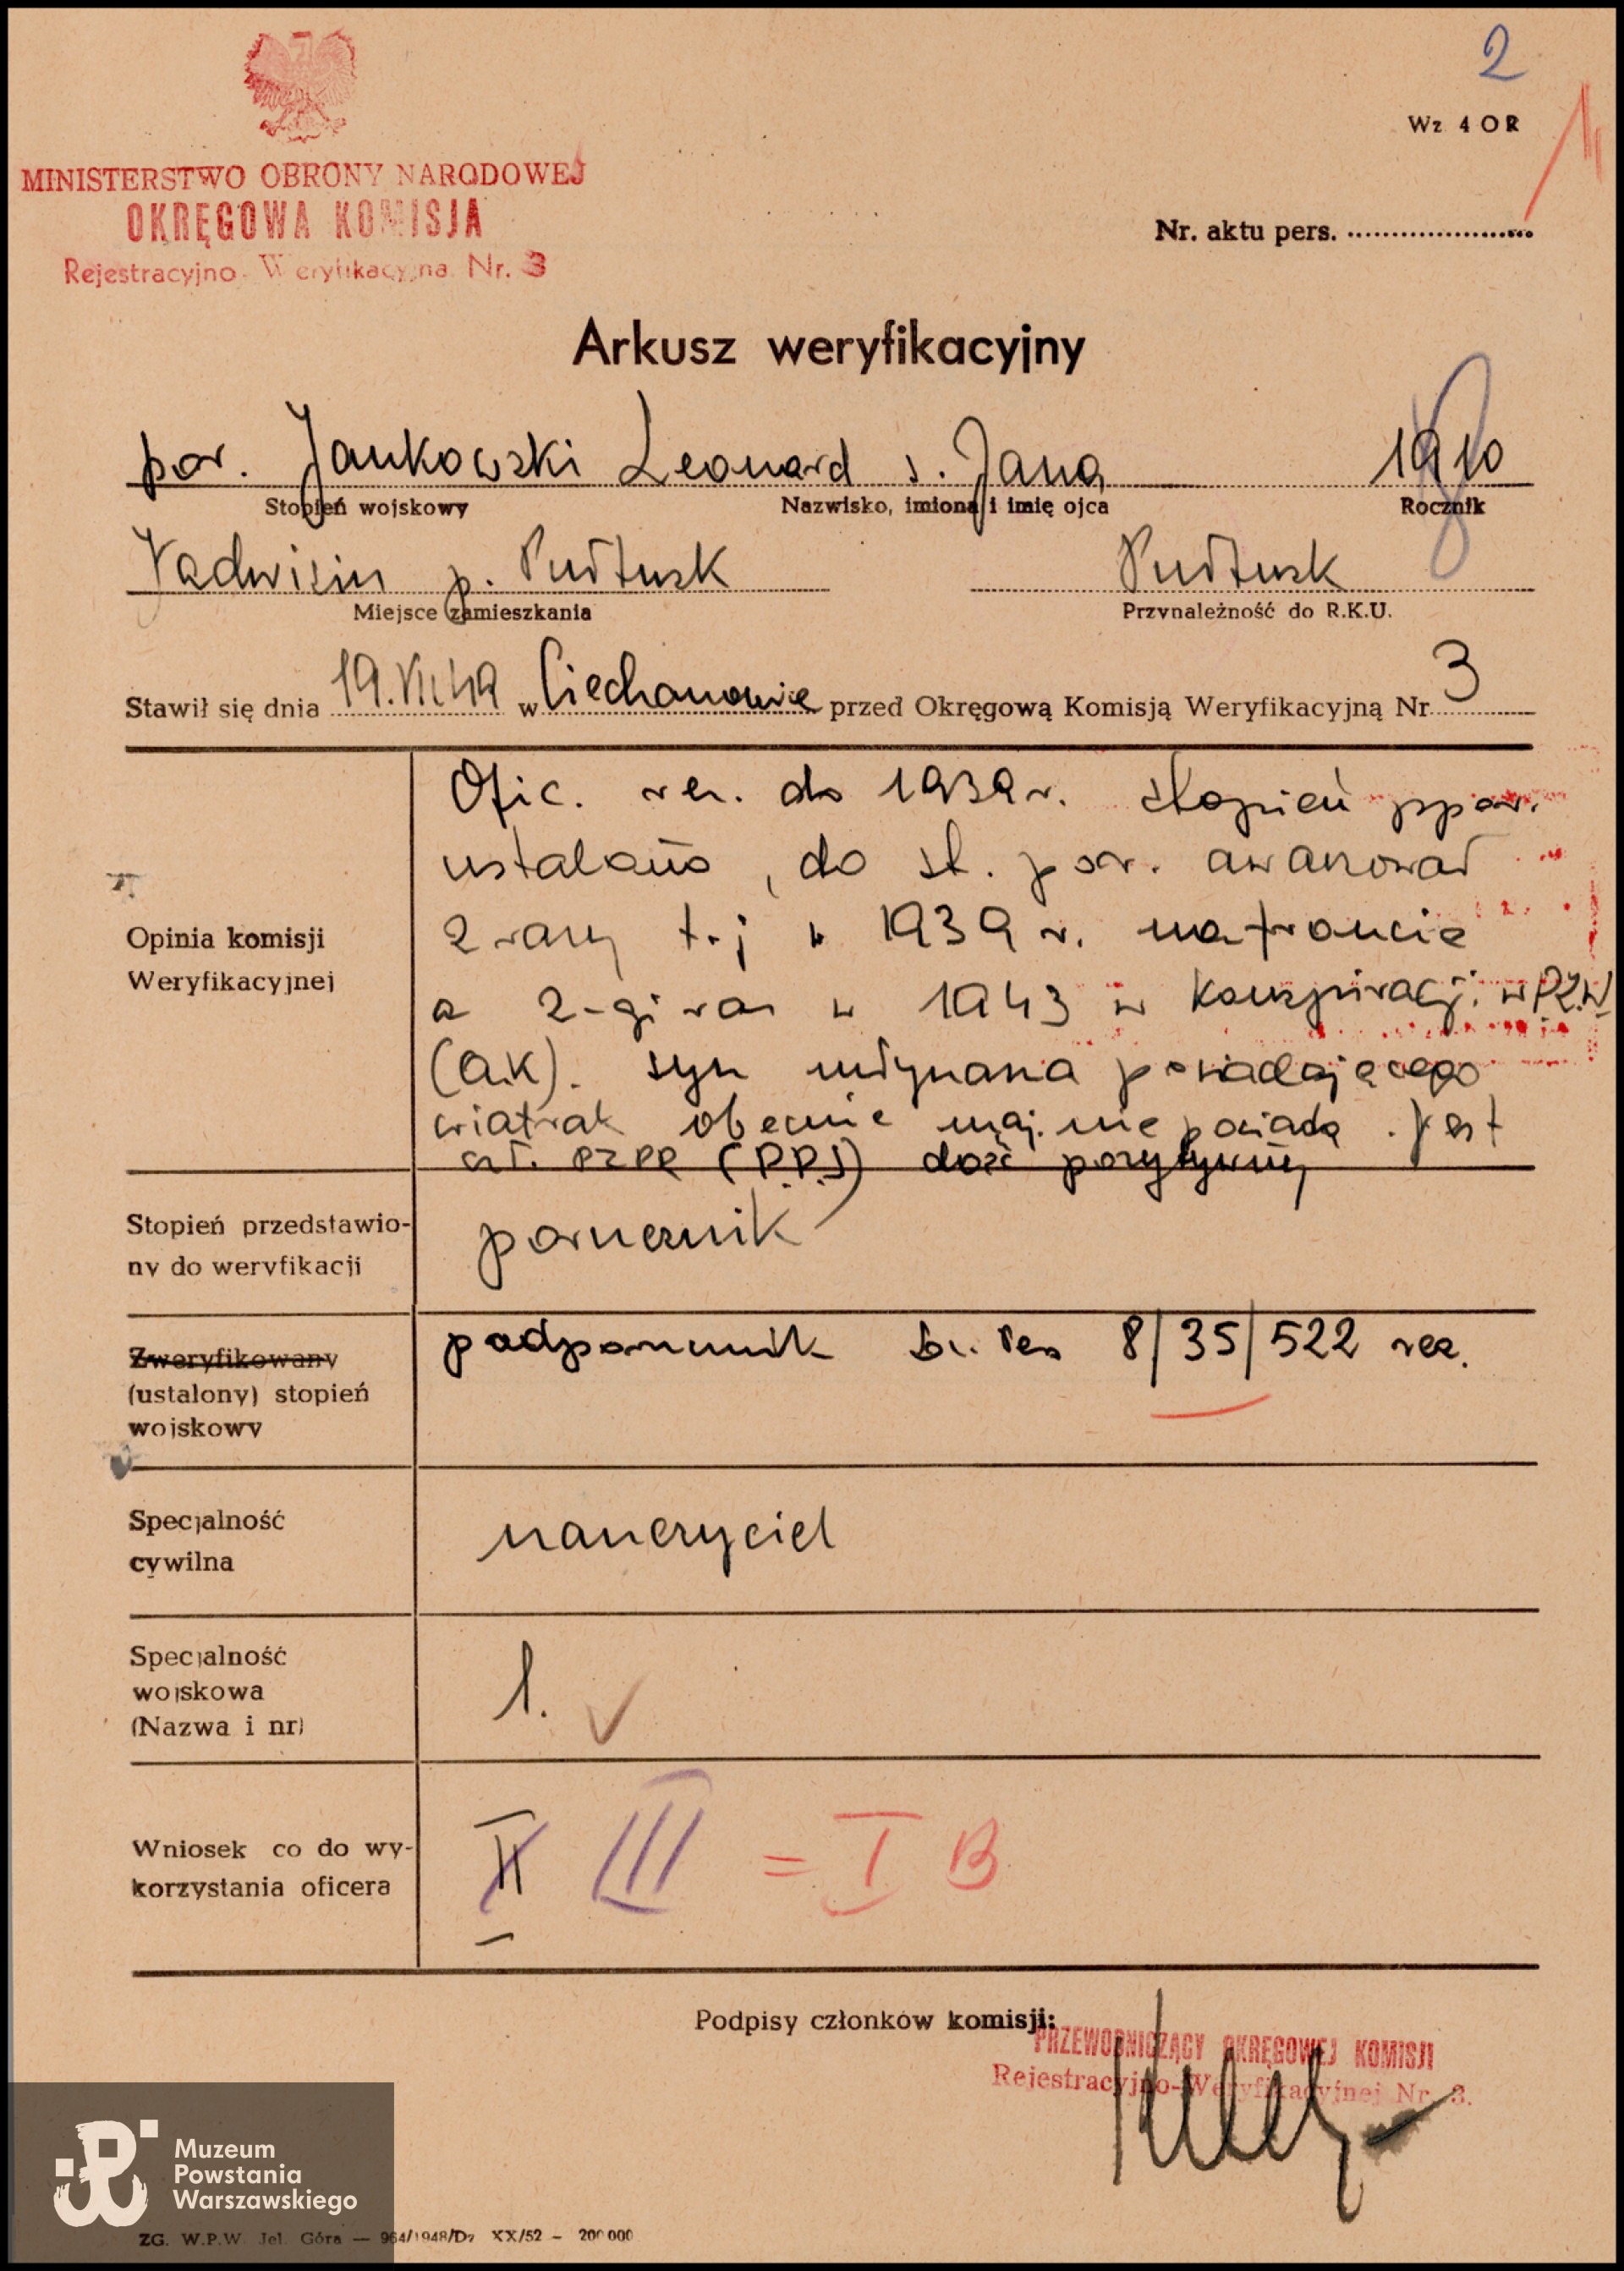 2
Wz 4 OR
1
MINISTERSTWO OBRONY NARODOWEJ
OKRĘGOWA KOMISJA
Rejestracyjno-Weryfikacyjna Nr. 3
Nr. aktu pers.
Arkusz weryfikacyjny
por. Jankowski Leonard s. Jana 1910
Stopień wojskowy Nazwisko, imiona i imię ojca Rocznik
p. Pułtusk Pułtusk
Miejsce zamieszkania Przynależność do R.K.U.
Stawił się dnia 19.VII.49 w Ciechanowie przed Okręgową Komisją Weryfikacyjną Nr 3
Opinia komisji
Weryfikacyjnej
Ofic. rez. do 1939 r. stopień ppor.
ustalono, do st. por. awansował
2 razy t.j w 1939 r. na froncie
a 2-gi raz w 1943 w konspiracji w P.Z.W
(A.K). syn młynarza posiadającego
wiatrak obecnie maj. nie posiada. Jest
czł. PZPR (P.P.S) dość pozytywny
Stopień przedstawio-
ny do weryfikacji
porucznik
Zweryfikowany
(ustalony) stopień
wojskowy
podporucznik 8/35/522 rez.
Specjalność
cywilna
nauczyciel
Specjalność
wojskowa
(Nazwa i nr)
1.
Wniosek co do wy-
korzystania oficera
II III = I B
Podpisy członków komisji:
PRZEWODNICZĄCY OKRĘGOWEJ KOMISJI
Rejestracyjno-Weryfikacyjnej Nr. 3.
Muzeum
Powstania
Warszawskiego
ZG. W.P.W. Jel. Góra — 964/1948/Dz XX/52 — 200 000